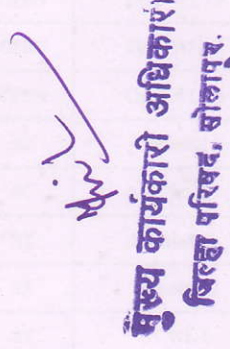 मुख्य कार्यकारी अधिकारी
जिल्हा परिषद, सोलापूर.